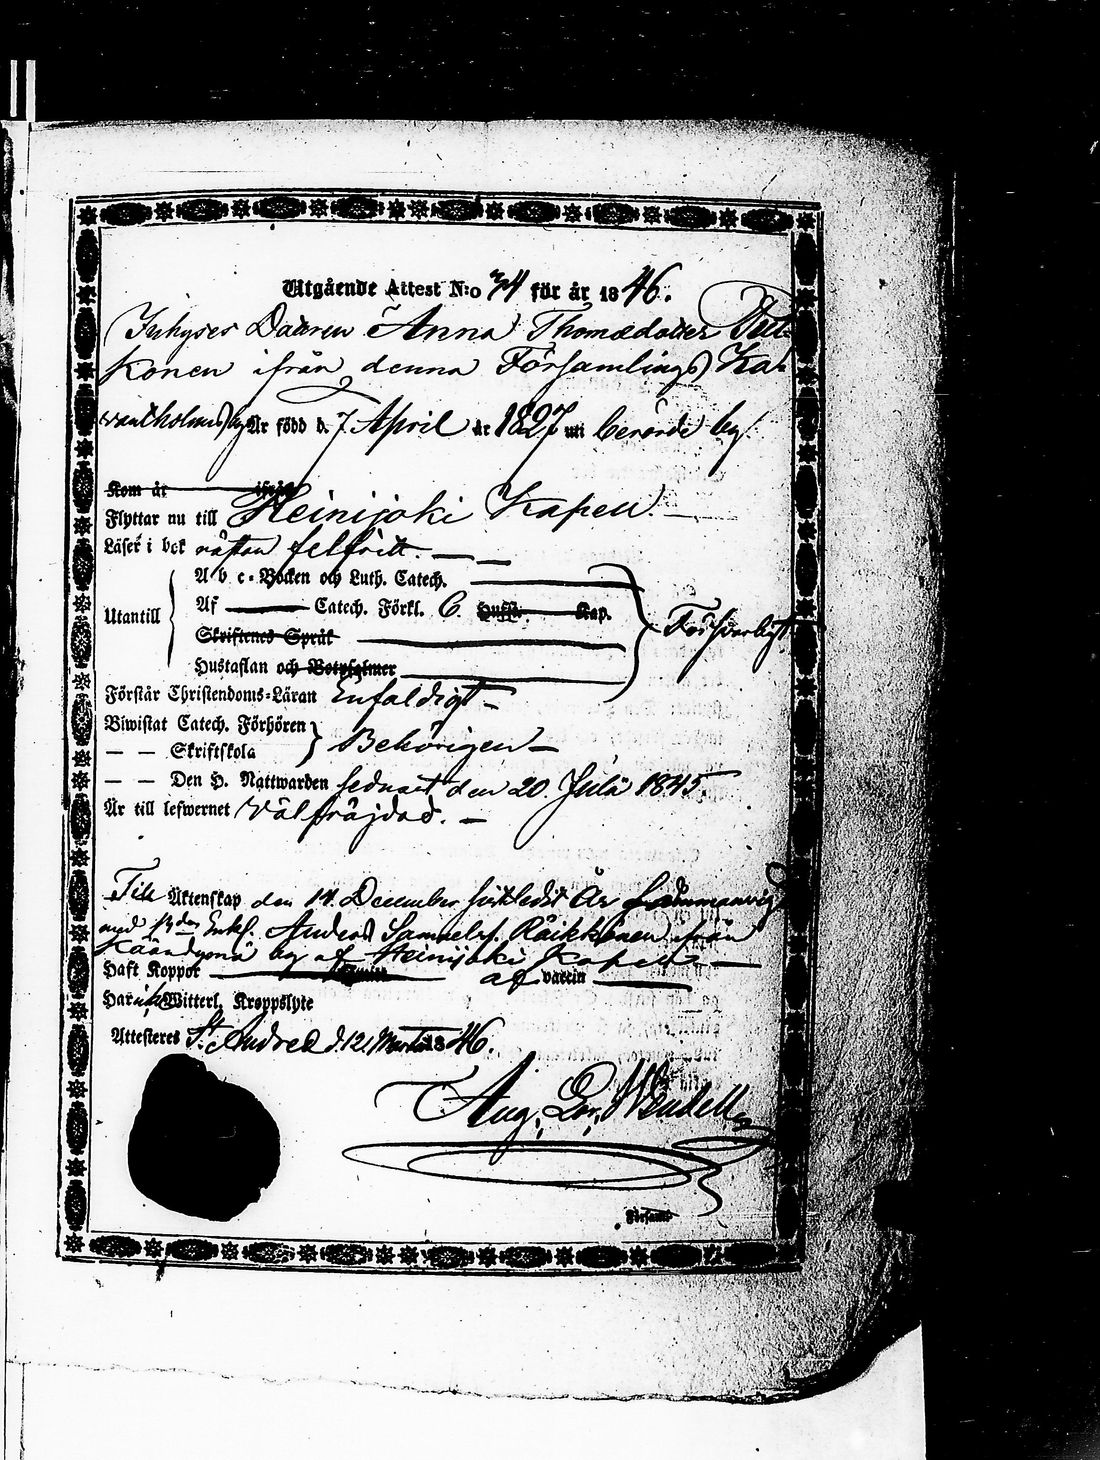 Utgående Attest N:o 74 för år 1846.
Inhyses Dottren Anna Thomædotter Pött-
konen ifrån denna Församlings Ka-
vantholms by Är född d. 7 April år 1827 uti berörde by.
Kom år ifrån
Flyttar nu till Heinijoki Kapell.
Läser i bok nästan felfritt.
A b c-Boken och Luth. Catech.
Utantill Af Catech. Förkl. 6. Hufst. Kap. Försvarligt
Skriftenes Språk
Hustaflan och Botpsalmer
Förstår Christendoms-Läran Enfaldigt
Biwistat Catech. Förhören
— — Skriftskola Behörigen
— — Den H. Nattwarden sednast den 20 Julii 1845.
Är till lefwernet Välfräjdad.
Till Äktenskap den 14 December sistledit År sammanvigd
med Enkl. Anders Samuelsf. Räikkönen ifrån
by af Heinijoki Kapell
Haft Koppor af vaccin
Har Witterl. Kroppslyte
Attesteres St. Andree d. 12 Martii 1846.
Aug. Wendell
Församl.